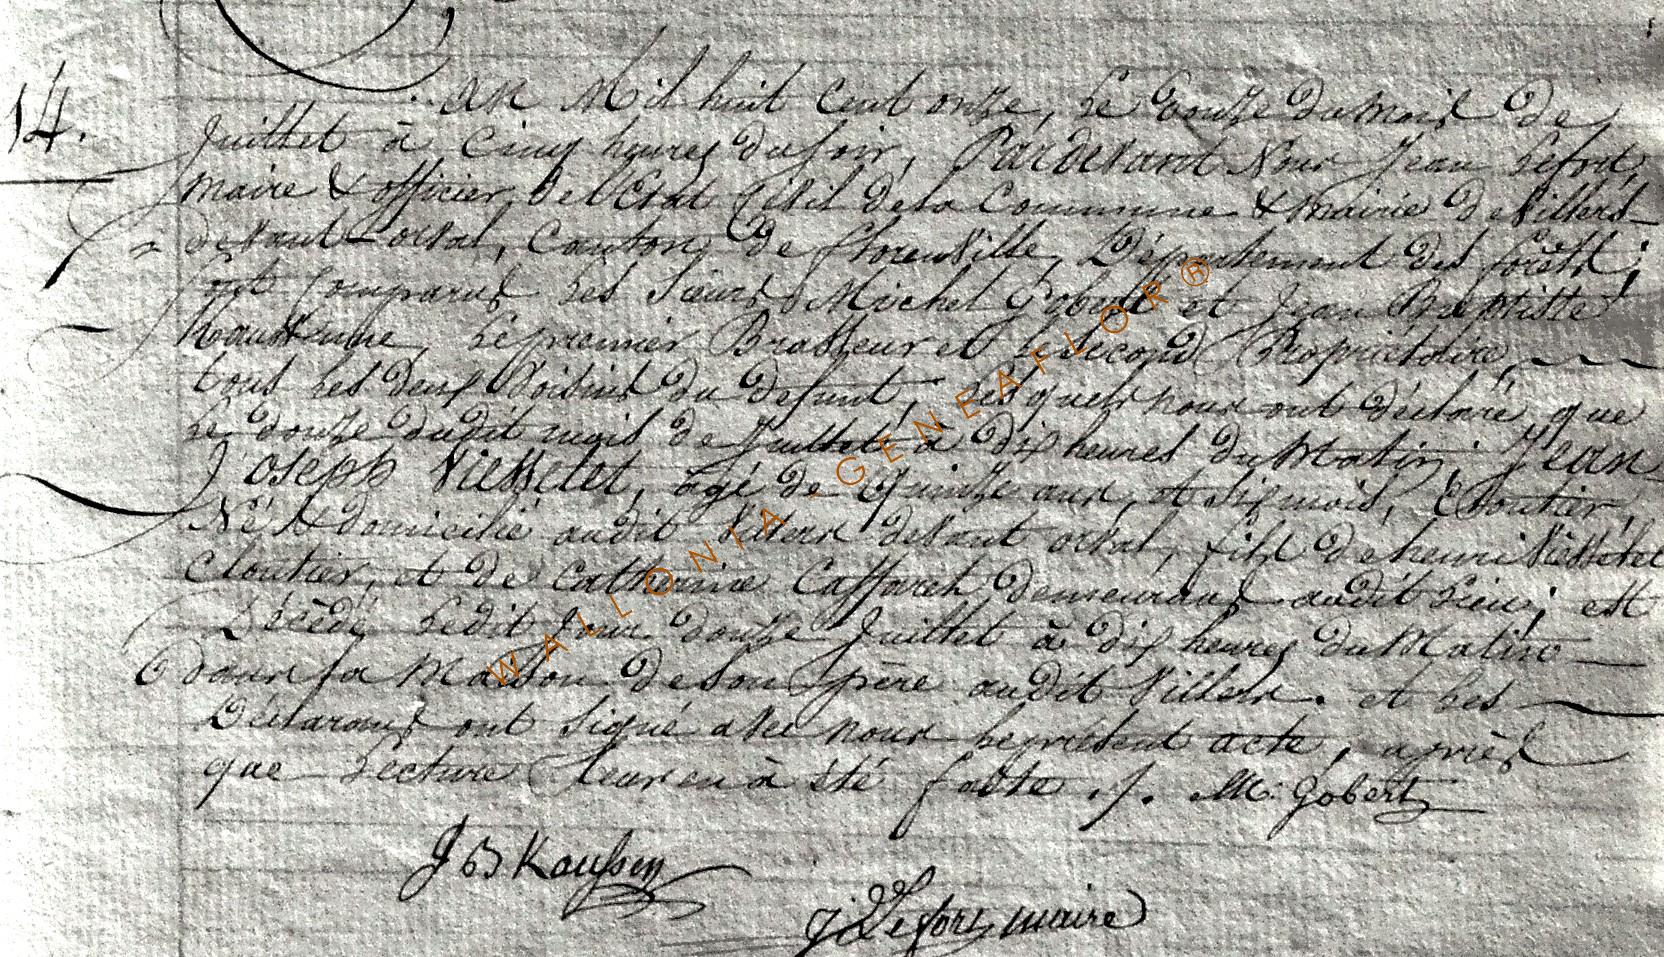 14.
An Mil huit Cent onze, Le douze du mois de
Juillet à Cinq heures du soir, Pardevant Nous Jean Lefort,
maire & officier de l'Etat Civil de la Commune & Mairie de Villers
devant-orval, Canton de florenville, Département des forêts;
sont Comparus Les Sieurs Michel Gobert et Jean Baptiste
Le premier Brasseur et le second Propriétaire,
tous Les deux Voisins du defunt, Lesquels nous ont déclaré que
Le douze dudit mois de Juillet à dix heures du Matin, Jean
Joseph Viesselet, âgé de Quinze ans et six mois, Cloutier,
Né & domicilié audit Villers devant orval, fils de henri Viesselet
Cloutier, et de Catherine Caffaret demeurans audit Lieu, est
Décédé Ledit Jour douze Juillet à dix heures du Matin
dans la Maison de son père audit Villers. et Les
Déclarans ont signé avec nous le présent acte, après
que Lecture Leur en à été faite ./. M: Gobert
J B Kaussen
J Lefort maire
WALLONIA-GENEAFLOR®